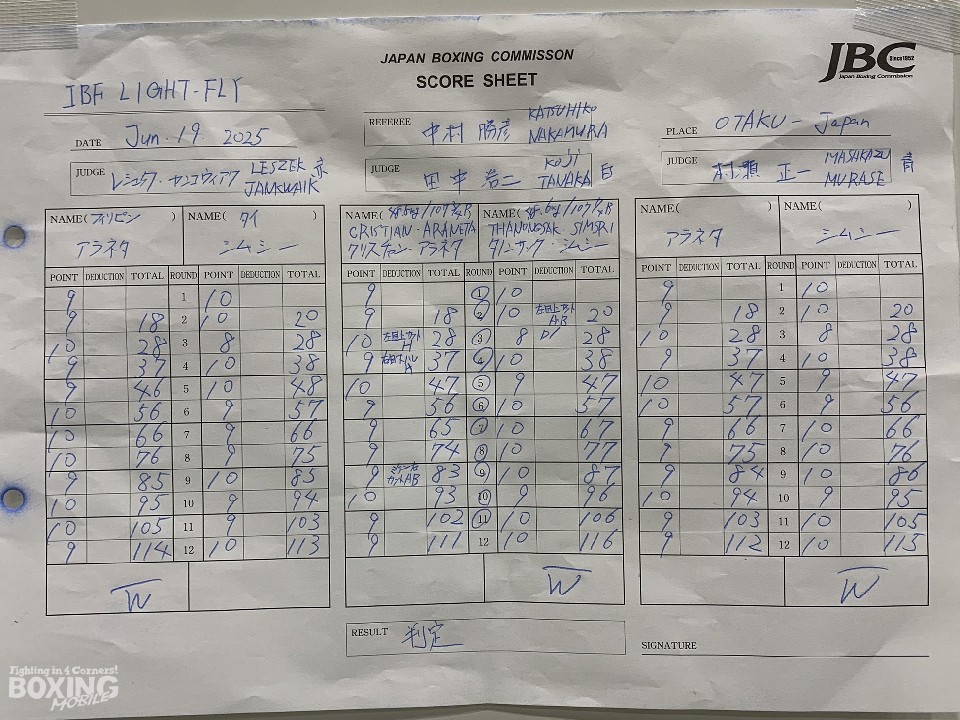 JAPAN BOXING COMMISSON
SCORE SHEET
JBC Since1952
Japan Boxing Commission
IBF LIGHT-FLY
DATE Jun. 19. 2025
REFEREE 中村 勝彦 KATSUHIKO NAKAMURA
PLACE OTAKU - Japan
JUDGE レシェック・ヤンコヴィアク LESZEK JANKWAIK 赤
JUDGE 田中 浩二 KOJI TANAKA 白
JUDGE 村瀬 正一 MASAKAZU MURASE 青
NAME(フィリピン) NAME(タイ)
アラネタ シムシー
POINT DEDUCTION TOTAL ROUND POINT DEDUCTION TOTAL
9 1 10
9 18 2 10 20
10 28 3 8 28
9 37 4 10 38
9 46 5 10 48
10 56 6 9 57
10 66 7 9 66
10 76 8 9 75
9 85 9 10 85
10 95 10 9 94
10 105 11 9 103
9 114 12 10 113
W
NAME( NAME(
CRISTIAN・ARANETA THANONGSAK SIMSRI
クリスチャン・アラネタ タノンサック・シムシー
POINT DEDUCTION TOTAL ROUND POINT DEDUCTION TOTAL
9 1 10
9 18 2 10 左目上カット AB 20
10 左目上カット 28 3 8 28
9 37 4 10 38
10 47 5 9 47
9 56 6 10 57
9 65 7 10 67
9 74 8 10 77
9 カットAB 83 9 10 87
10 93 10 9 96
9 102 11 10 106
9 111 12 10 116
W
NAME( ) NAME( )
アラネタ シムシー
POINT DEDUCTION TOTAL ROUND POINT DEDUCTION TOTAL
9 1 10
9 18 2 10 20
10 28 3 8 28
9 37 4 10 38
10 47 5 9 47
10 57 6 9 56
9 66 7 10 66
9 75 8 10 76
9 84 9 10 86
10 94 10 9 95
9 103 11 10 105
9 112 12 10 115
W
RESULT 判定
SIGNATURE
Fighting in 4 Corners!
BOXING
MOBILE